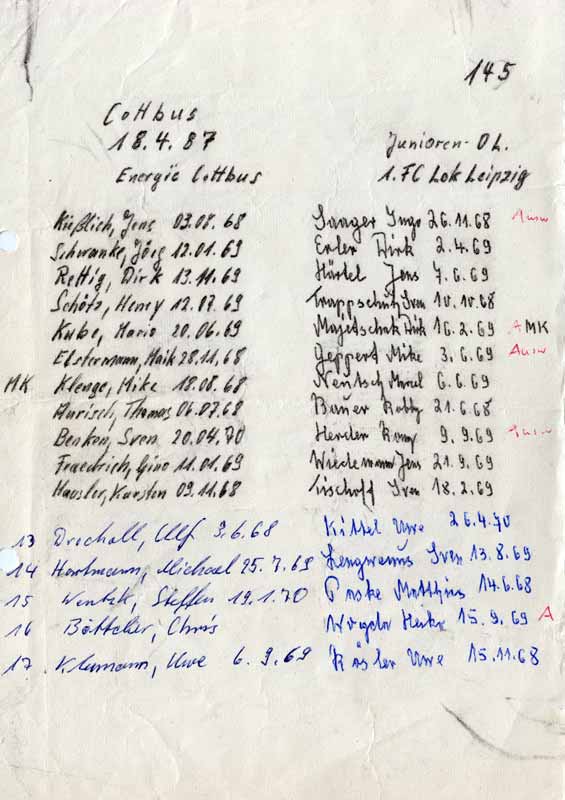 145
Cottbus
18.4.87
Junioren-OL.
Energie Cottbus
1. FC Lok Leipzig
Kießlich, Jens 03.08.68
Schwanke, Jörg 12.01.69
Rettig, Dirk 13.11.69
Schötz, Henry 12.07.69
Kube, Mario 20.06.69
Elstermann, Maik 28.11.68
MK Klenge, Mike 18.08.68
Hurisch, Thomas 06.07.68
Benken, Sven 20.04.70
Fraedrich, Gino 11.01.69
Häusler, Karsten 09.11.68
13 Drechall, Ulf 9.6.68
14 Hartmann, Michael 25.7.69
15 Steffen 19.1.70
16 Böttcher, Chris
17. Klumann, Uwe 6.9.69
Saager Ingo 26.11.68 Ausw
Erler Dirk 2.4.69
Härtel Jens 7.6.69
Trappschutz Sven 10.10.68
Majetschak Dirk 16.2.69 A MK
Geppert Mike 3.6.69 Ausw
Neutsch Marcel 6.6.69
Bauer Robby 21.6.68
Herder 9.9.69 Ausw
Wiedemann Jens 21.9.69
Tischoff Sven 18.2.69
Kittel Uwe 26.4.70
Sven 13.8.69
Paske Matthias 14.6.68
Heiko 15.9.69 A
Rösler Uwe 15.11.68